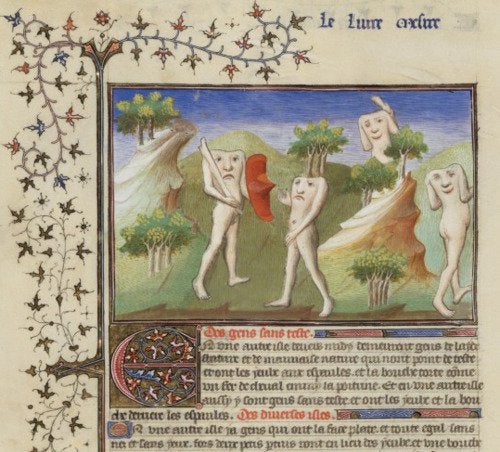 Le liure
Des gens sans teste.
En une autre isle deuers midy demeurent gens de laide
stature et de mauuaise nature qui nont point de teste
et ont les yeux aux espaules. et la bouche torte cōme
un fer de cheual enmy la poitrine. Et en une autre isle
aussy y sont gens sans teste et ont les yeux et la bou
che derriere les espaules. Des diuerses isles.
En une autre isle ja gens qui ont la face plate. et toute egal. sans
nes et sans yeux. fors deux petis sont en lieu des yeulx. et une bouche